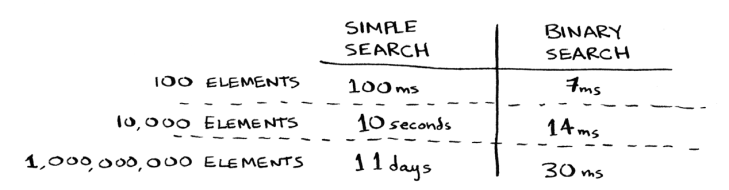 SIMPLE SEARCH
BINARY SEARCH
100 ELEMENTS 100ms 7ms
10,000 ELEMENTS 10 seconds 14ms
1,000,000,000 ELEMENTS 11 days 30 ms